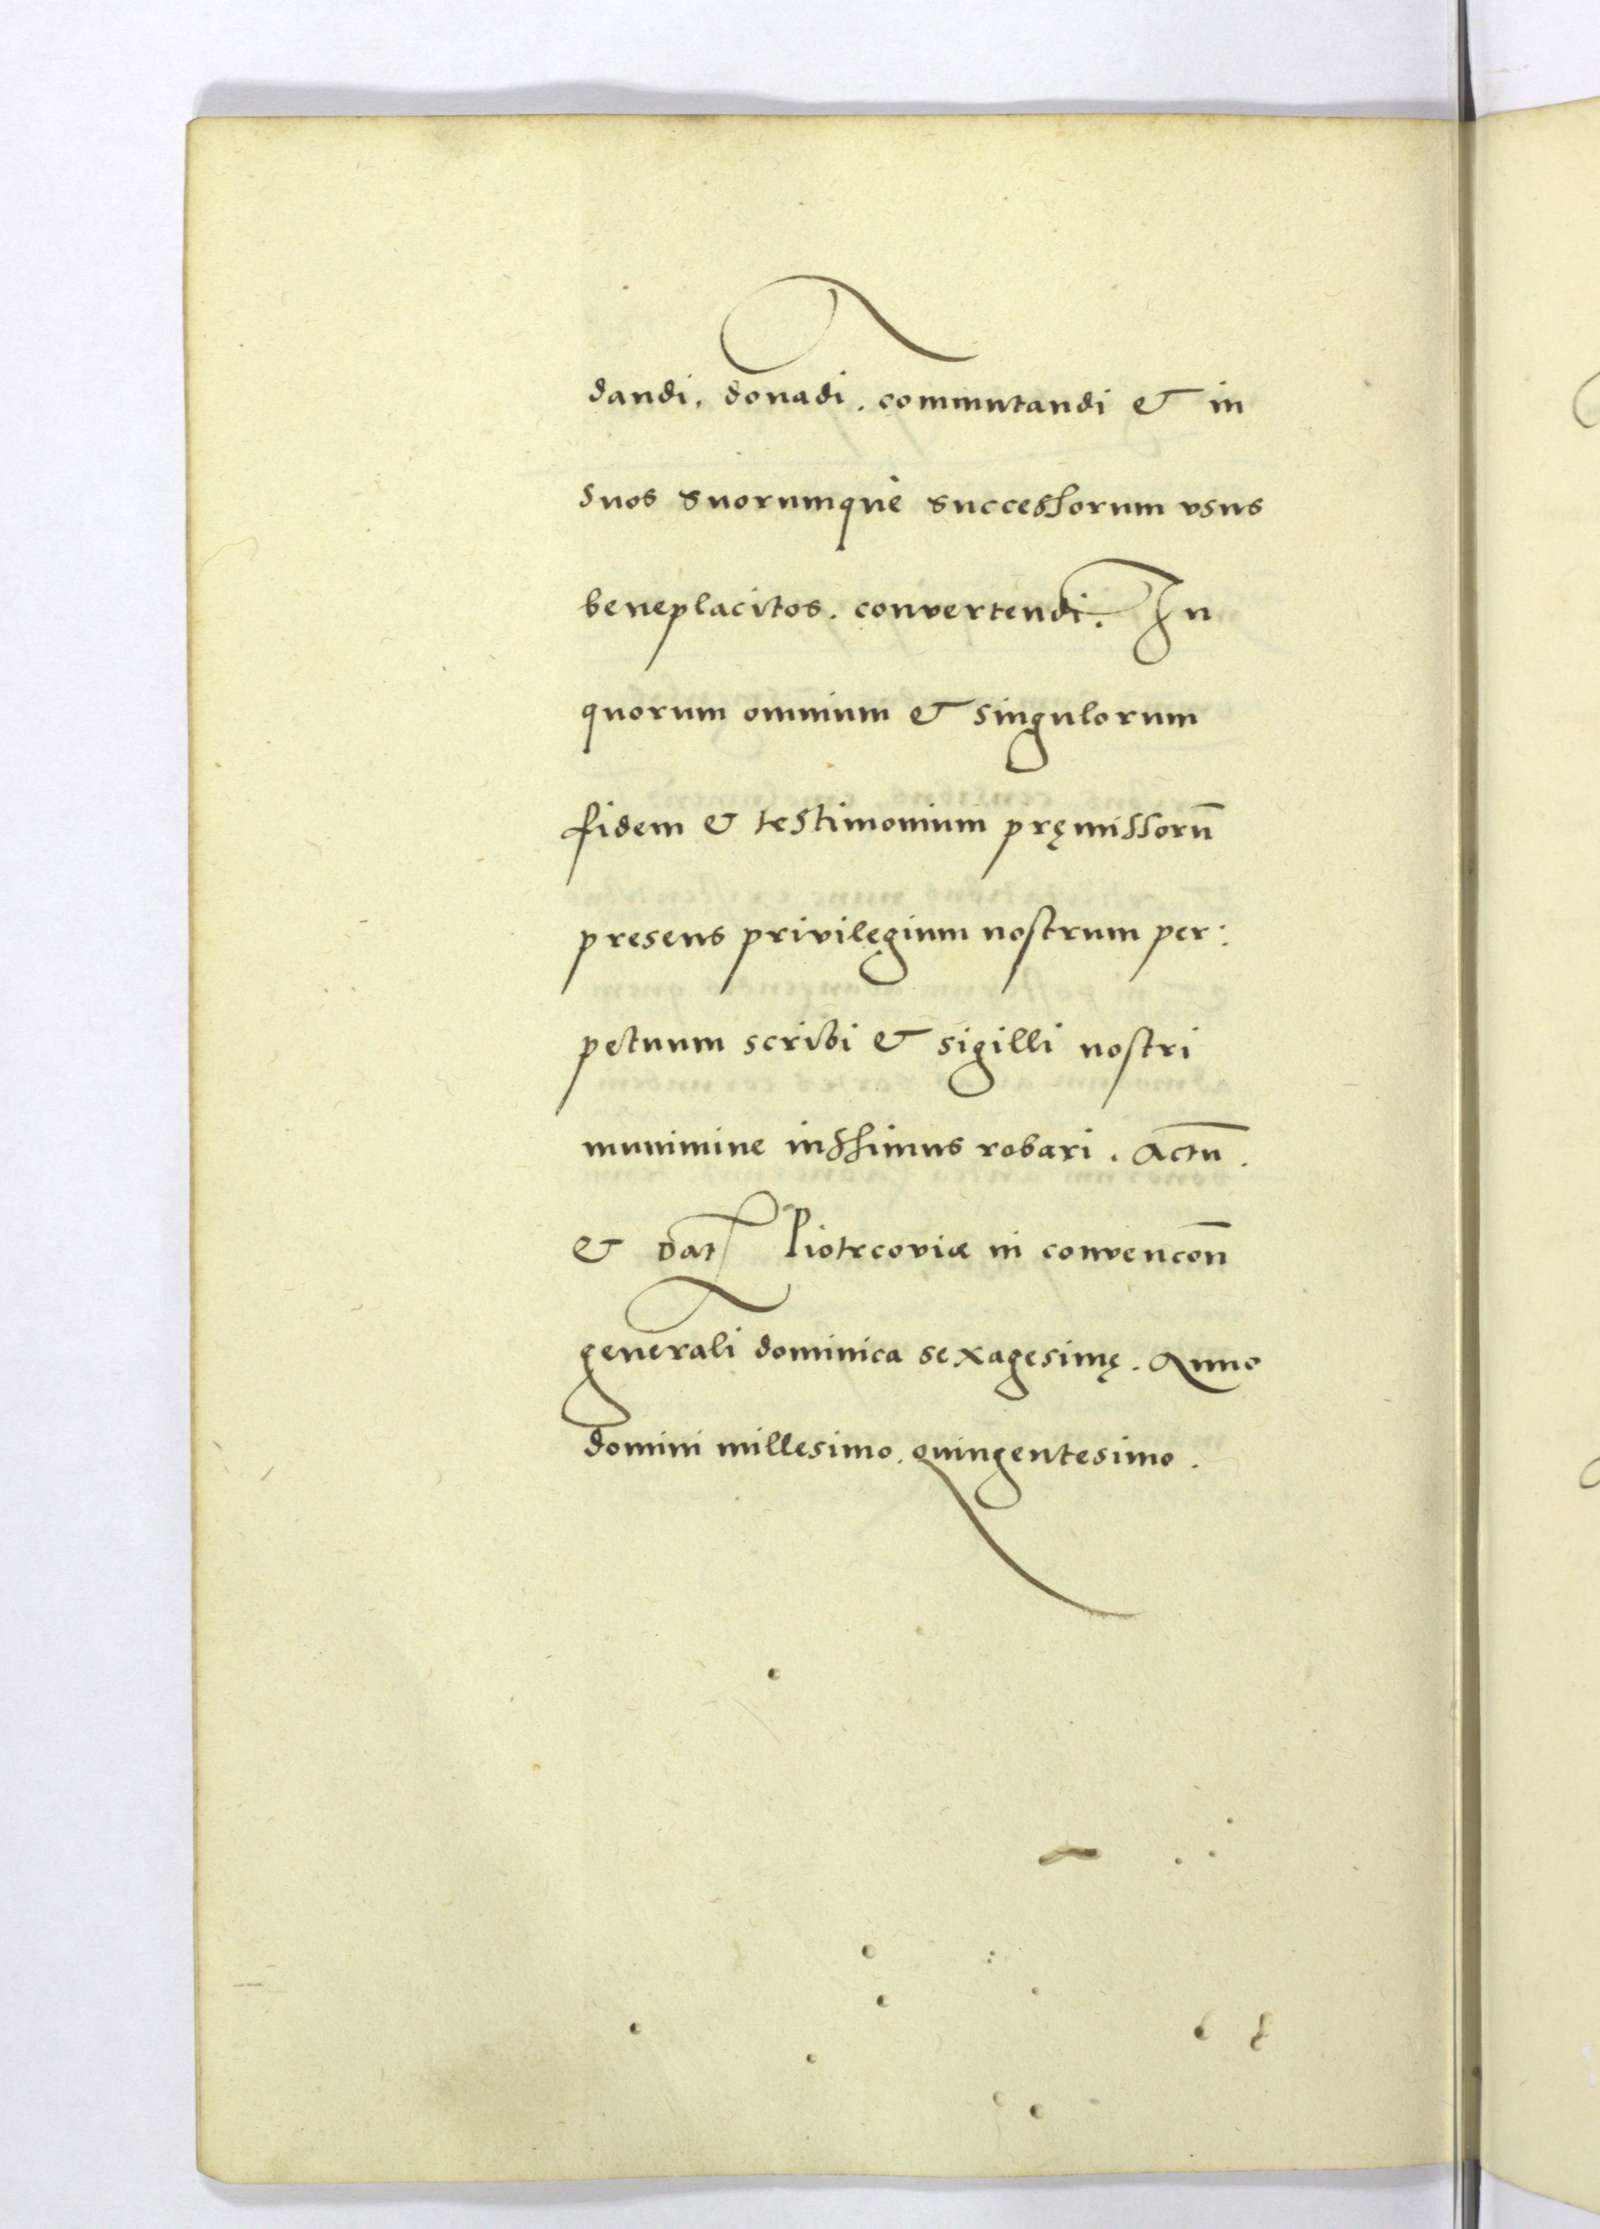 dandi. donãdi. commutandi & in
suos suorumquè successorum vsus
beneplacitos. convertendi. In
quorum omnium & singulorum
fidem & testimonium pręmissorū
presens privilęgium nostrum per:
petuum scribi & sigilli nostri
munimine iussimus robari. Actū.
& Dat Piotrcoviæ in convencōn
generali dominica sexagesimę. Anno
domini millesimo. quingentesimo.